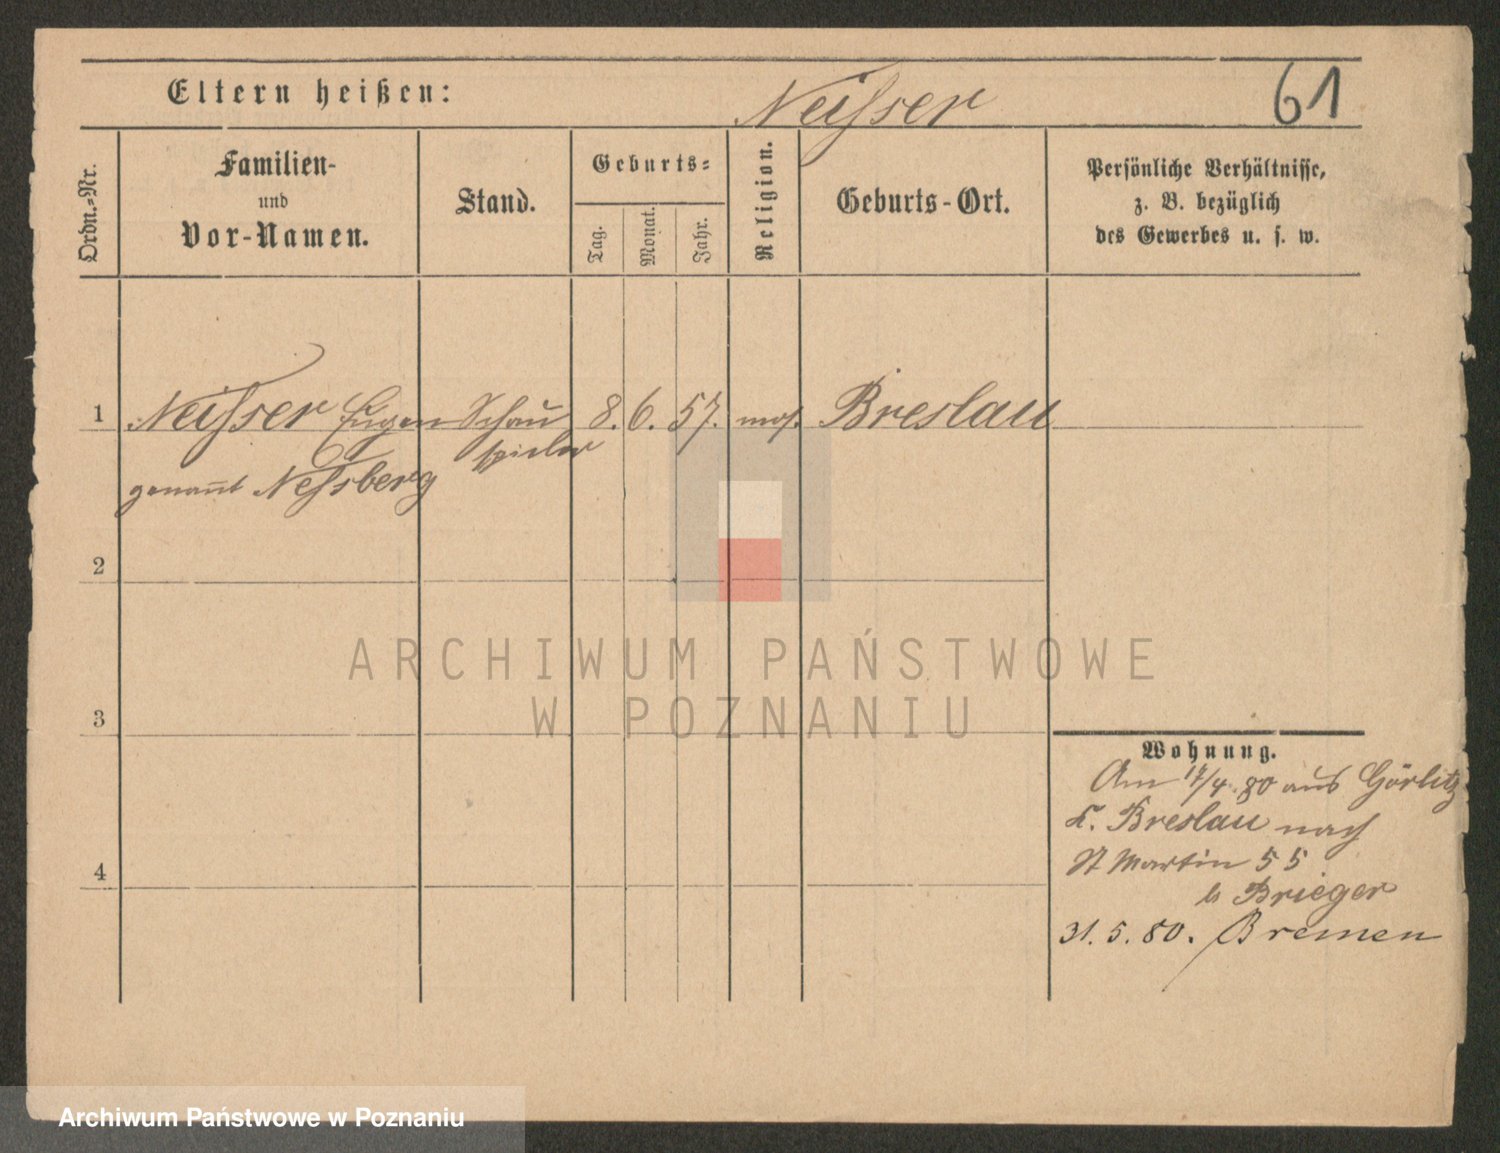 Eltern heißen:
Neisser
61
Ordn.-Nr.
Familien-
und
Vor-Namen.
Stand.
Geburts-
Tag.
Monat.
Jahr.
Religion.
Geburts-Ort.
Persönliche Verhältnisse,
z. B. bezüglich
des Gewerbes u. s. w.
1 Neisser Eugen Schau 8. 6. 57. mos. Breslau
spieler
genannt Nessberg
2
3
4
Wohnung.
Am 17/4 80 aus Görlitz
Breslau nach
St Martin 55
b Brieger
31. 5. 80. Bremen
ARCHIWUM PAŃSTWOWE
W POZNANIU
Archiwum Państwowe w Poznaniu